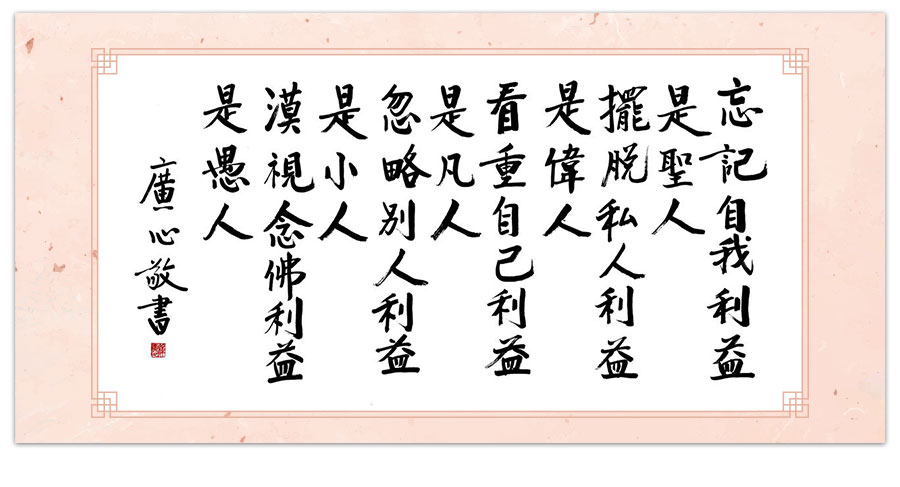 忘記自我利益
是聖人
擺脫私人利益
是偉人
看重自己利益
是凡人
忽略別人利益
是小人
漠視念佛利益
是愚人
廣心敬書